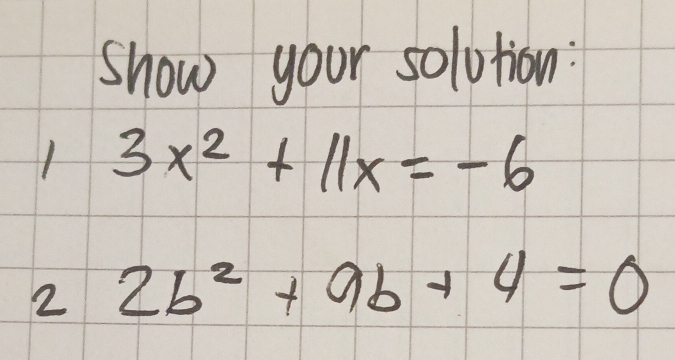 Show your solution:
1 3x² + 11x = -6
2 2b² + 9b + 4 = 0